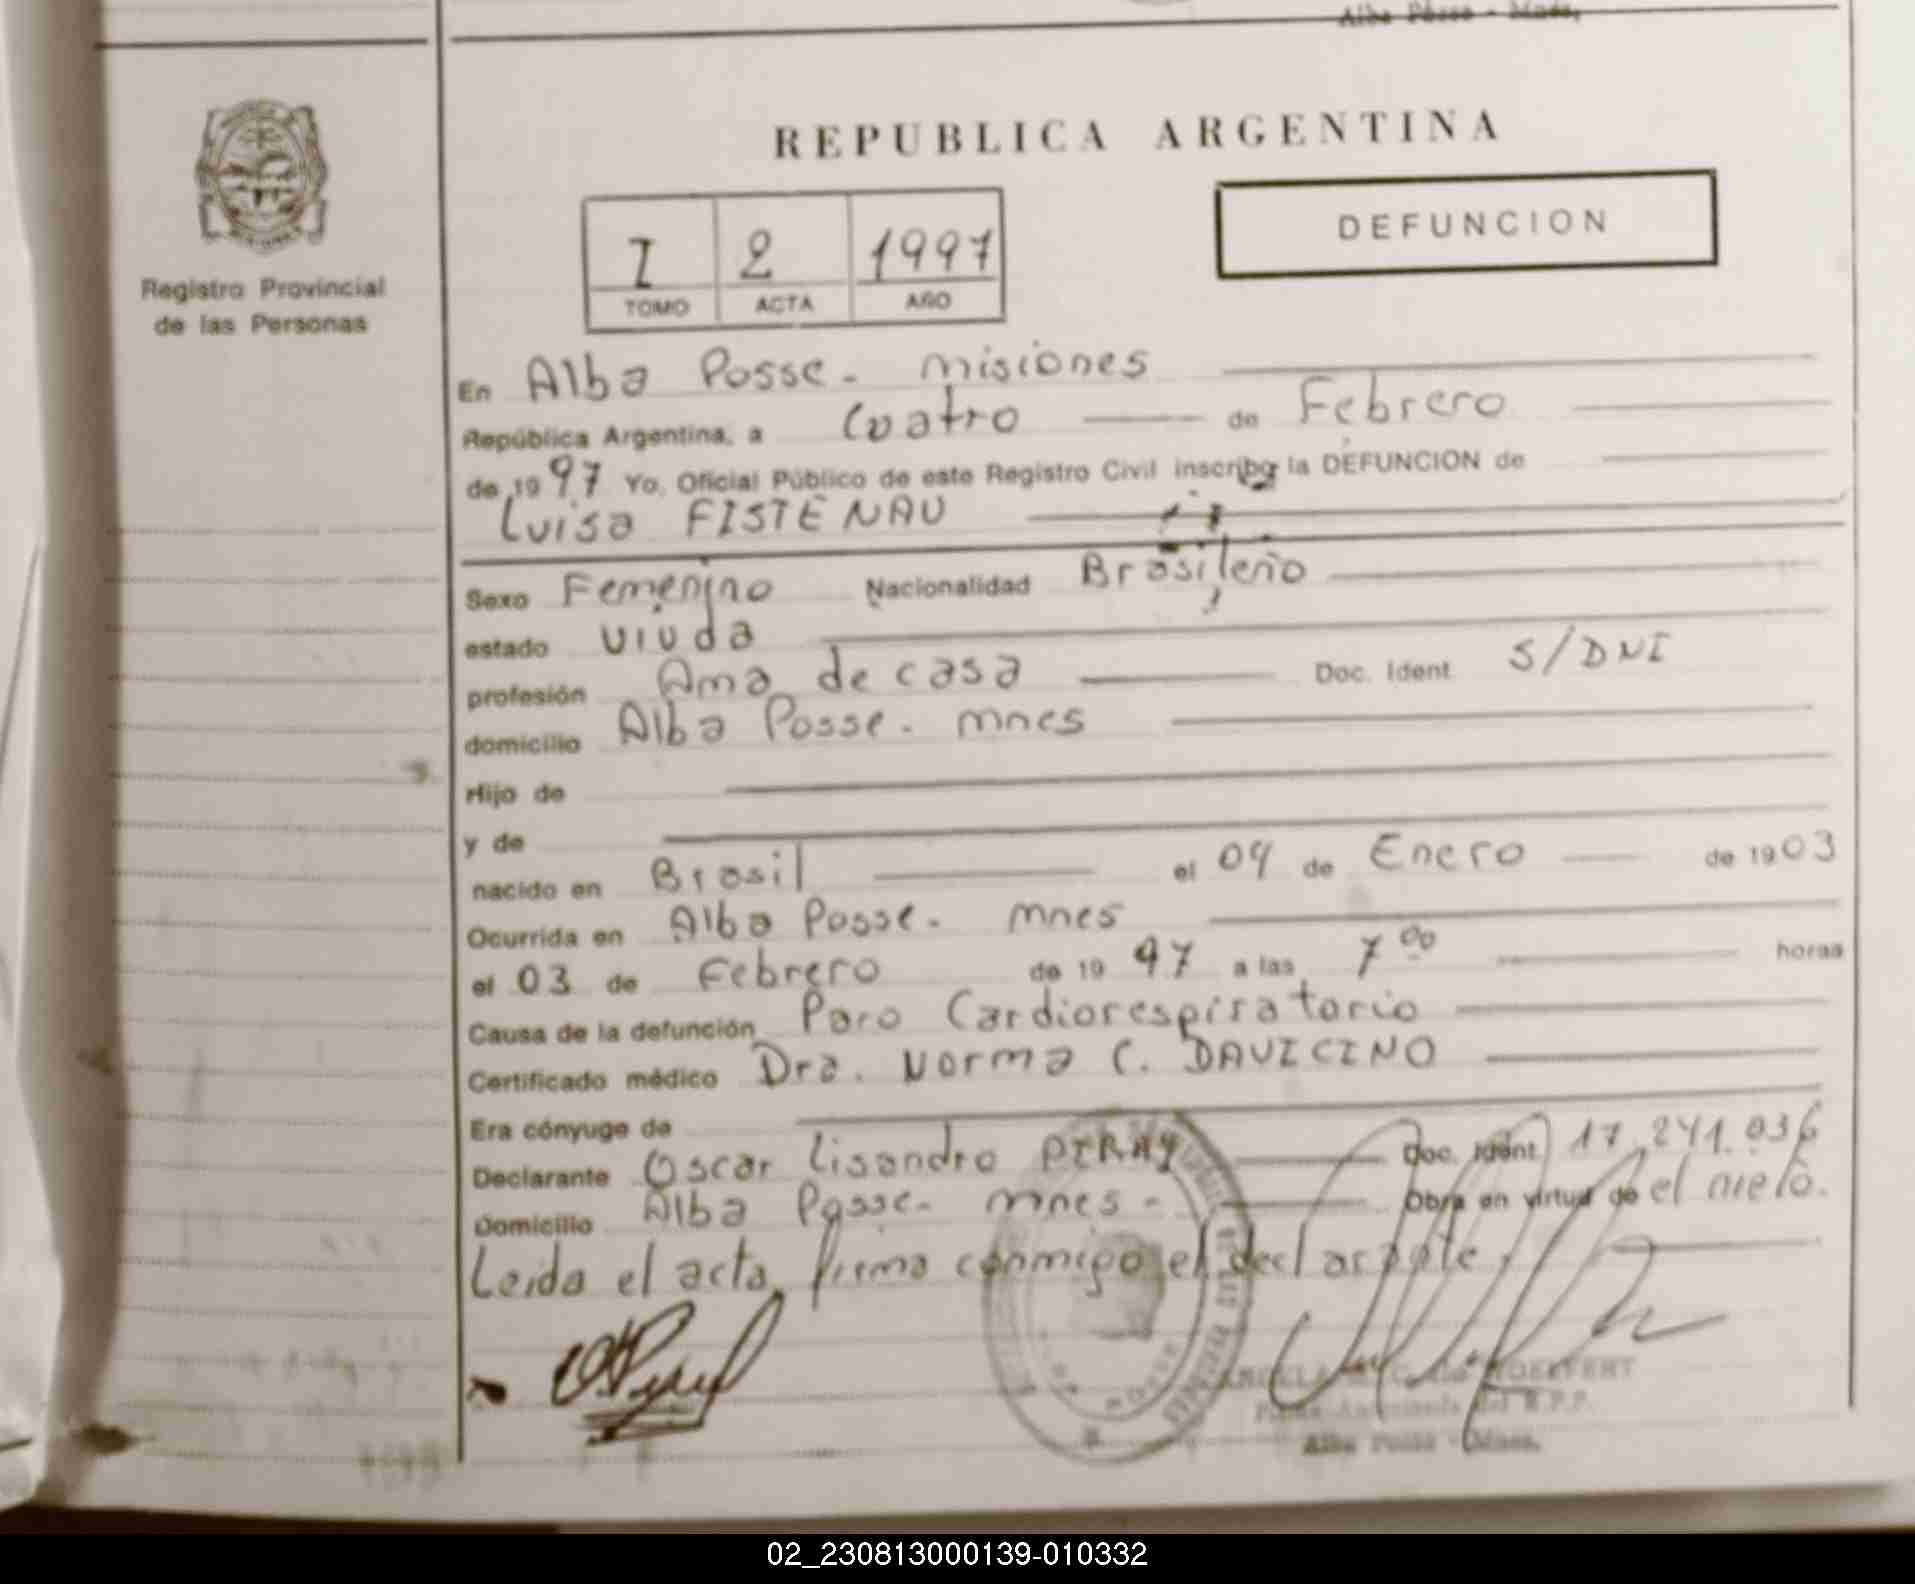 Alba Posse - Mnes,
REPUBLICA ARGENTINA
I 2 1997
TOMO ACTA AÑO
DEFUNCION
Registro Provincial
de las Personas
En Alba Posse - misiones
República Argentina, a Cuatro de Febrero
de 1997 Yo, Oficial Público de este Registro Civil inscribo la DEFUNCION de
Luisa FISTENAU
Sexo Femenino Nacionalidad Brasileño
estado viuda
profesión Ama de casa Doc. Ident. S/DNI
domicilio Alba Posse - mnes
Hijo de
y de
nacido en Brasil el 04 de Enero de 1903
Ocurrida en Alba Posse - mnes
el 03 de Febrero de 1997 a las 7 00 horas
Causa de la defunción Paro Cardiorespiratorio
Certificado médico Dra. Norma C. DAVICINO
Era cónyuge de
Declarante Oscar Lisandro PIRAY Doc. Ident. 17.241.036
Domicilio Alba Posse - mnes - Obra en virtud de el nieto.
Leida el acta, firma conmigo el declarante,
Alba Posse - Mnes.
02_230813000139-010332